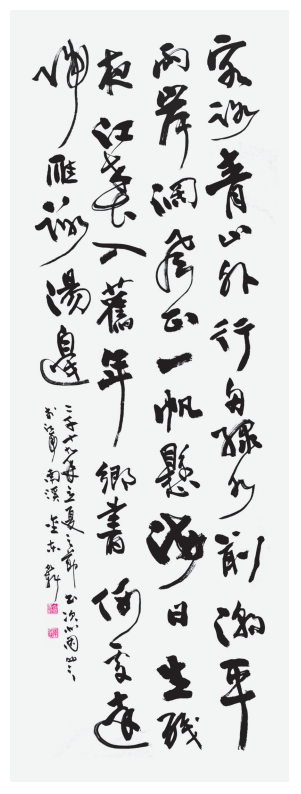 客路青山外行舟綠水前潮平
兩岸闊風正一帆懸海日生殘
夜江春入舊年鄉書何處達
歸雁洛陽邊
年立夏之節書次北固山下
南溪